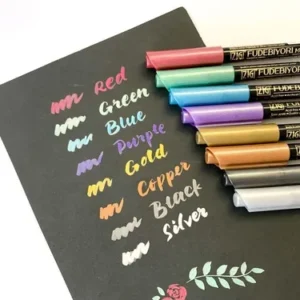 Red
Green
Blue
Purple
Gold
Copper
Black
Silver
ZIG FUDEBIYORI
ZIG FUDEBIYORI
ZIG FUDEBIYO
ZIG FUDEBI
ZIG
ZIG
ZIG